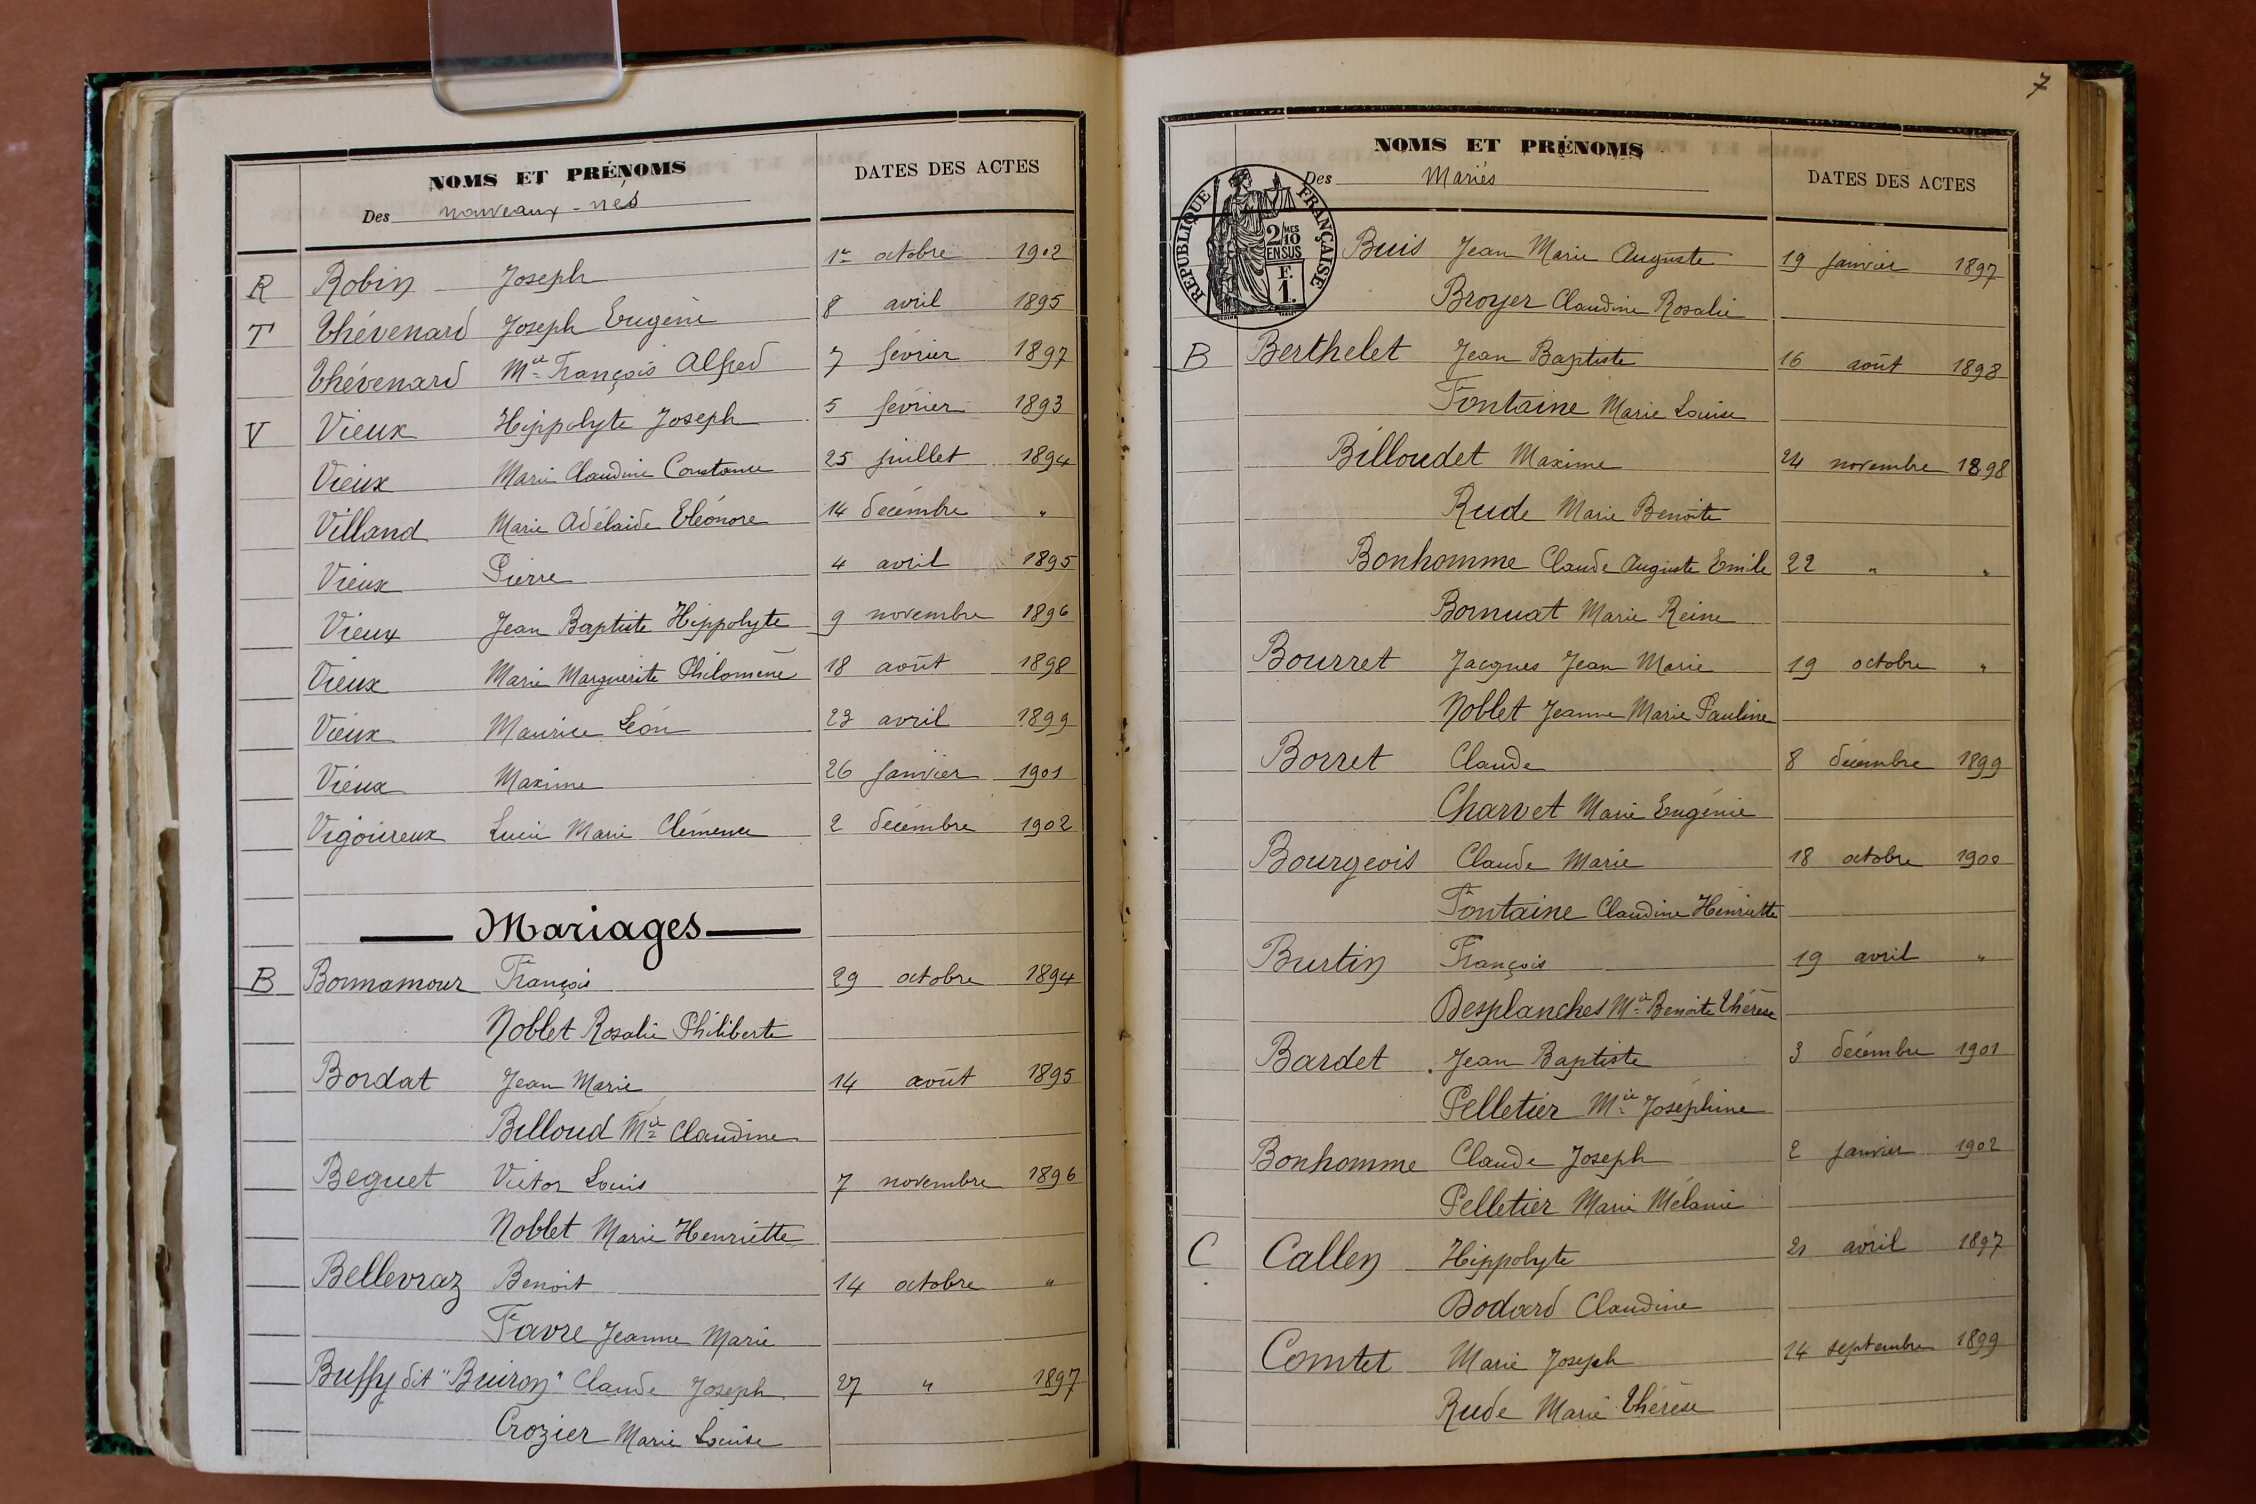 NOMS ET PRÉNOMS
DATES DES ACTES
Des nouveaux-nés
R Robin Joseph 1er octobre 1902
T Thévenard Joseph Eugène 8 avril 1895
Thévenard Mie François Alfred 7 février 1897
V Vieux Hippolyte Joseph 5 février 1893
Vieux Marie Claudine Constance 25 juillet 1894
Villand Marie Adélaïde Eléonore 14 décembre "
Vieux Pierre 4 avril 1895
Vieux Jean Baptiste Hippolyte 9 novembre 1896
Vieux Marie Marguerite Philomène 18 août 1898
Vieux Maurice Léon 23 avril 1899
Vieux Maxime 26 janvier 1901
Vigoureux Lucie Marie Clémence 2 décembre 1902
Mariages
B Bonnamour François 29 octobre 1894
Noblet Rosalie Philiberte
Bordat Jean Marie 14 août 1895
Billoud Mie Claudine
Beguet Victor Louis 7 novembre 1896
Noblet Marie Henriette
Bellevraz Benoit 14 octobre "
Favre Jeanne Marie
Buffy dit "Buiron" Claude Joseph 27 " 1897
Crozier Marie Louise
7
NOMS ET PRÉNOMS
DATES DES ACTES
Des Mariés
RÉPUBLIQUE FRANÇAISE
2/10 MES
EN SUS
F.
1.
Buis Jean Marie Auguste 19 janvier 1897
Broyer Claudine Rosalie
B Berthelet Jean Baptiste 16 août 1898
Fontaine Marie Louise
Billoudet Maxime 24 novembre 1898
Rude Marie Benoîte
Bonhomme Claude Auguste Emile 22 " "
Bornuat Marie Reine
Bourret Jacques Jean Marie 19 octobre "
Noblet Jeanne Marie Pauline
Borret Claude 8 décembre 1899
Charvet Marie Eugénie
Bourgeois Claude Marie 18 octobre 1900
Fontaine Claudine Henriette
Burtin François 19 avril "
Desplanches Mie Benoite Thérèse
Bardet Jean Baptiste 3 décembre 1901
Pelletier Mie Joséphine
Bonhomme Claude Joseph 2 janvier 1902
Pelletier Marie Mélanie
C Callen Hippolyte 21 avril 1897
Dodard Claudine
Comtet Marie Joseph 14 septembre 1899
Rude Marie Thérèse